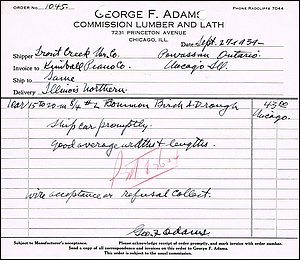 ORDER NO. 1045 PHONE RADCLIFFE 7044
GEORGE F. ADAMS
COMMISSION LUMBER AND LATH
7231 PRINCETON AVENUE
CHICAGO, ILL.
DATE Sept. 27 1934
Shipper Trout Creek Co. Powassan Ontario.
Invoice to Kimball Piano Co. Chicago Ill.
Ship to Same
Delivery Illinois Northern
1 car 15 to 20 m 5/4 #2 Common Birch Dr 43.00
Chicago.
Ship car promptly.
Good average widths & lengths.
Wire acceptance or refusal collect.
Geo. F. Adams
Subject to Manufacturer's acceptance. Please acknowledge receipt of order promptly, and mark invoice with order number.
Send a copy of all correspondence and invoices on this order to George F. Adams.
This is our Confirmation of the above order.